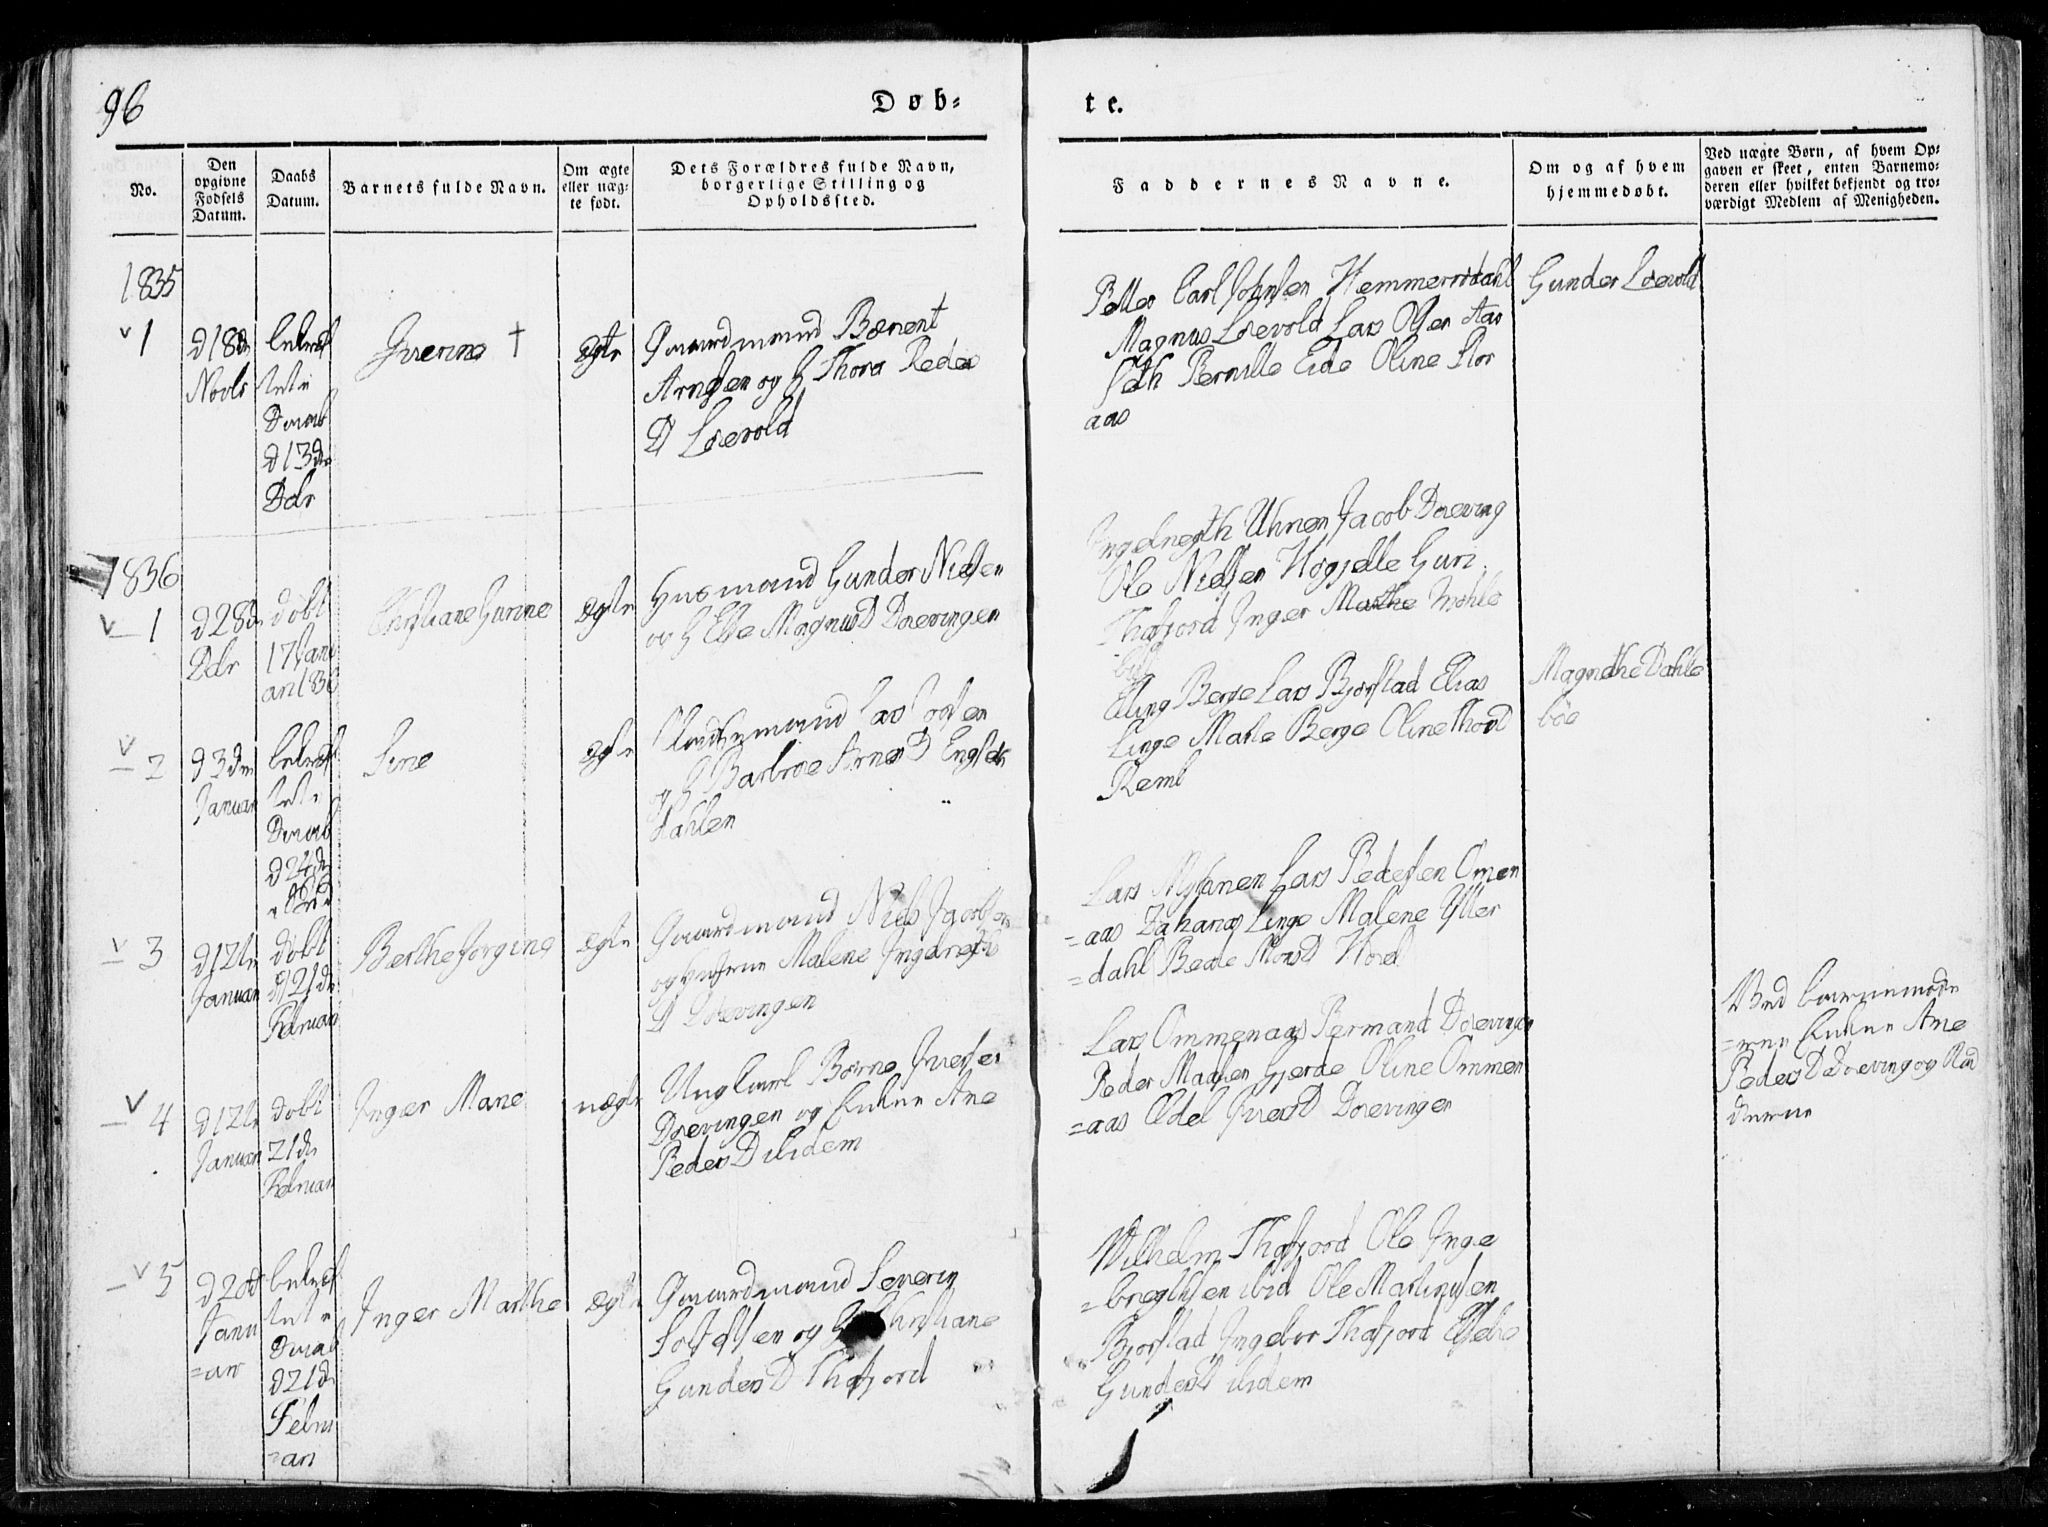 96
Døb-
te.
No.
Den opgivne Fødsels Datum.
Daabs Datum.
Barnets fulde Navn.
Om ægte eller uægte født.
Dets Forældres fulde Navn, borgerlige Stilling og Opholdssted.
Faddernes Navne.
Om og af hvem hjemmedøbt.
Ved uægte Børn, af hvem Opgaven er skeet, enten Barnemoderen eller hvilket bekjendt og troværdigt Medlem af Menigheden.
1835
1
d 18de
Novbr
bekræf
tet i
Daab
d 13de
Dcbr
Iverine †
ægte
Gaardmand Bærent
Arnesen og H Thora Peder
D Løevold
Carl Johnsen Hemmerrsdahl
Magnus Løevold Lars Olsen Aar
seth Pernille Eide Oline Stor
aas
Gunder Løevold
1836
1
d 28de
Dcbr
døbt
17 Janu
ari 1836
Christiane Gurine
ægte
Husmand Gunder Nielsen
og H Else MagnusD Døevingen
Uhnen Jacob Døeving
Ole Nielsen Guri
Thafjord Inger Marthe
2
d 3de
Januari
bekræf
tet i
Daab
d 24de
Sine
ægte
Lars
og H Barbroe ArneD Engset
dahlen
Elling Berge Lars Bjørstad Elias
Linge Marte Berge Oline
Reml
Magnethe Dahle
bøe
3
d 12te
Januari
døbt
d 21de
Februari
Berthe Jørgine
ægte
Gaardmand Niels Jacobsen
og Hustrue Malene Ingebregts
D Døevingen
Lars Lars Pedersen Omen
=aas Zaharias Linge Malene Ytter
=dahl Beate
4
d 12te
Januari
døbt
21de
Februari
Inger Marie
uægte
Ungkarl Børne Iversen
Døevingen og Enken Ane
PedersD ibidem
Lars Ommenaas Bernand Døevingen
Peder Madsen Gjerde Oline Ommen
=aas Edel IversD Døevingen
Ved Barnemode
=ren Enken Ane
PedersD Døeving og Fad
derne
5
d 20de
Janu
=ari
bekræf
tet i
Daab
d 21de
Febru
=ari
Inger Marthe
ægte
Gaardmand Severin
og H Christiane
GundersD Thafjord
Wilhelm Thafjord Ole Inge
=bregthsen ibid Ole Martinussen
Bjørstad Ingebor Thafjord
GundersD ibidem